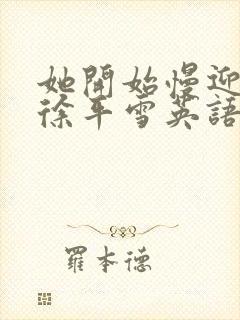 她開始慢迎
徐平雪英語
羅本德